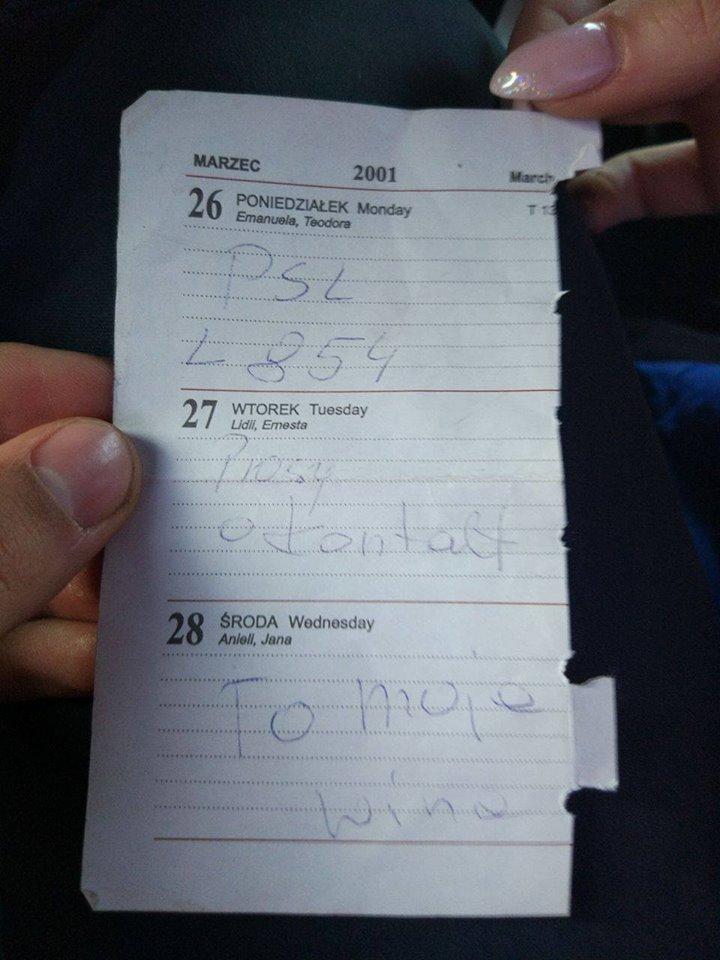 MARZEC 2001 March
26 PONIEDZIAŁEK Monday T 13
Emanuela, Teodora
PSL
L 854
27 WTOREK Tuesday
Lidii, Ernesta
Prosy
o kontakt
28 ŚRODA Wednesday
Anieli, Jana
To moje
wina